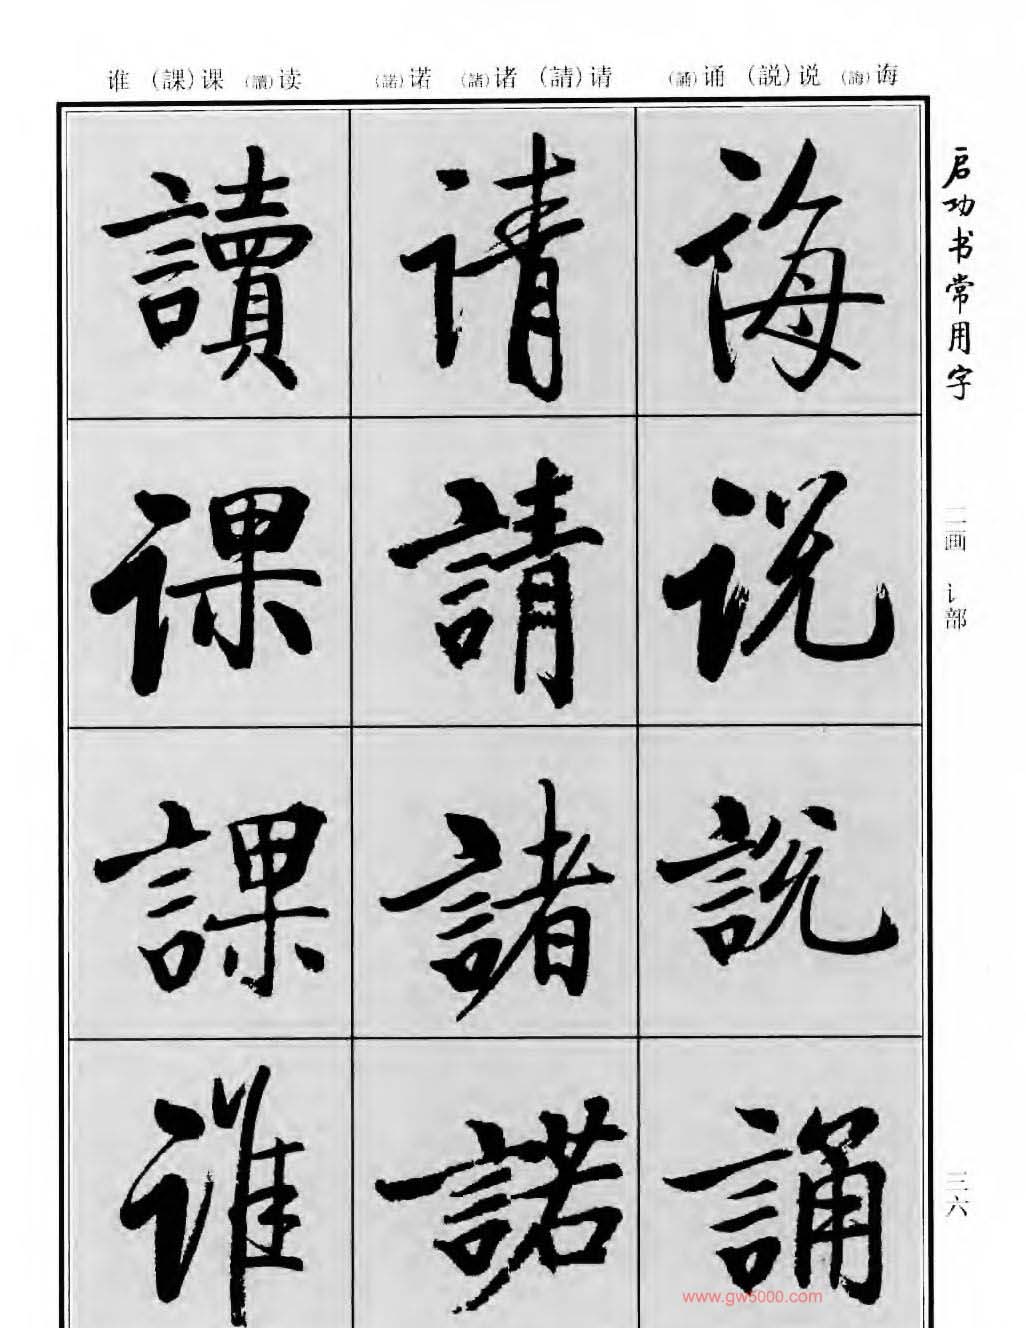 谁 (課)课 (讀)读 (諾)诺 (諸)诸 (請)请 (誦)诵 (説)说 (誨)诲
启功书常用字
二画 讠部
三六
诲
说
説
誦
请
請
諸
諾
讀
课
課
谁
www.gw5000.com